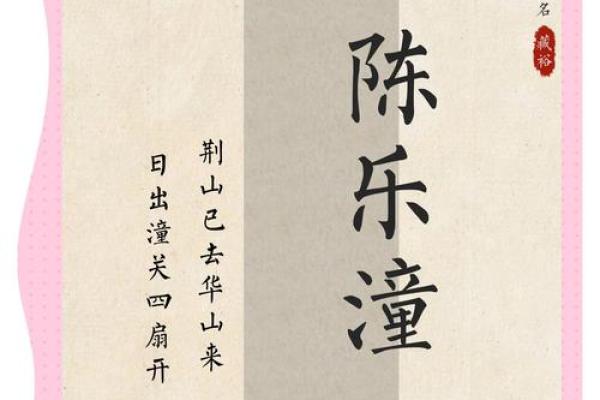 名
藏裕
陈乐潼
荆山已去华山来
日出潼关四扇开